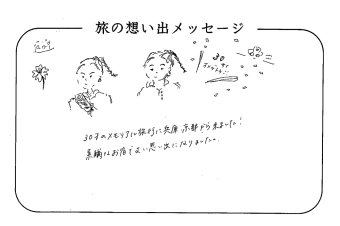 旅の想い出メッセージ
30才
30才のメモリアル旅行に兵庫 京都から来ました！
素敵なお店で良い思い出になりました。